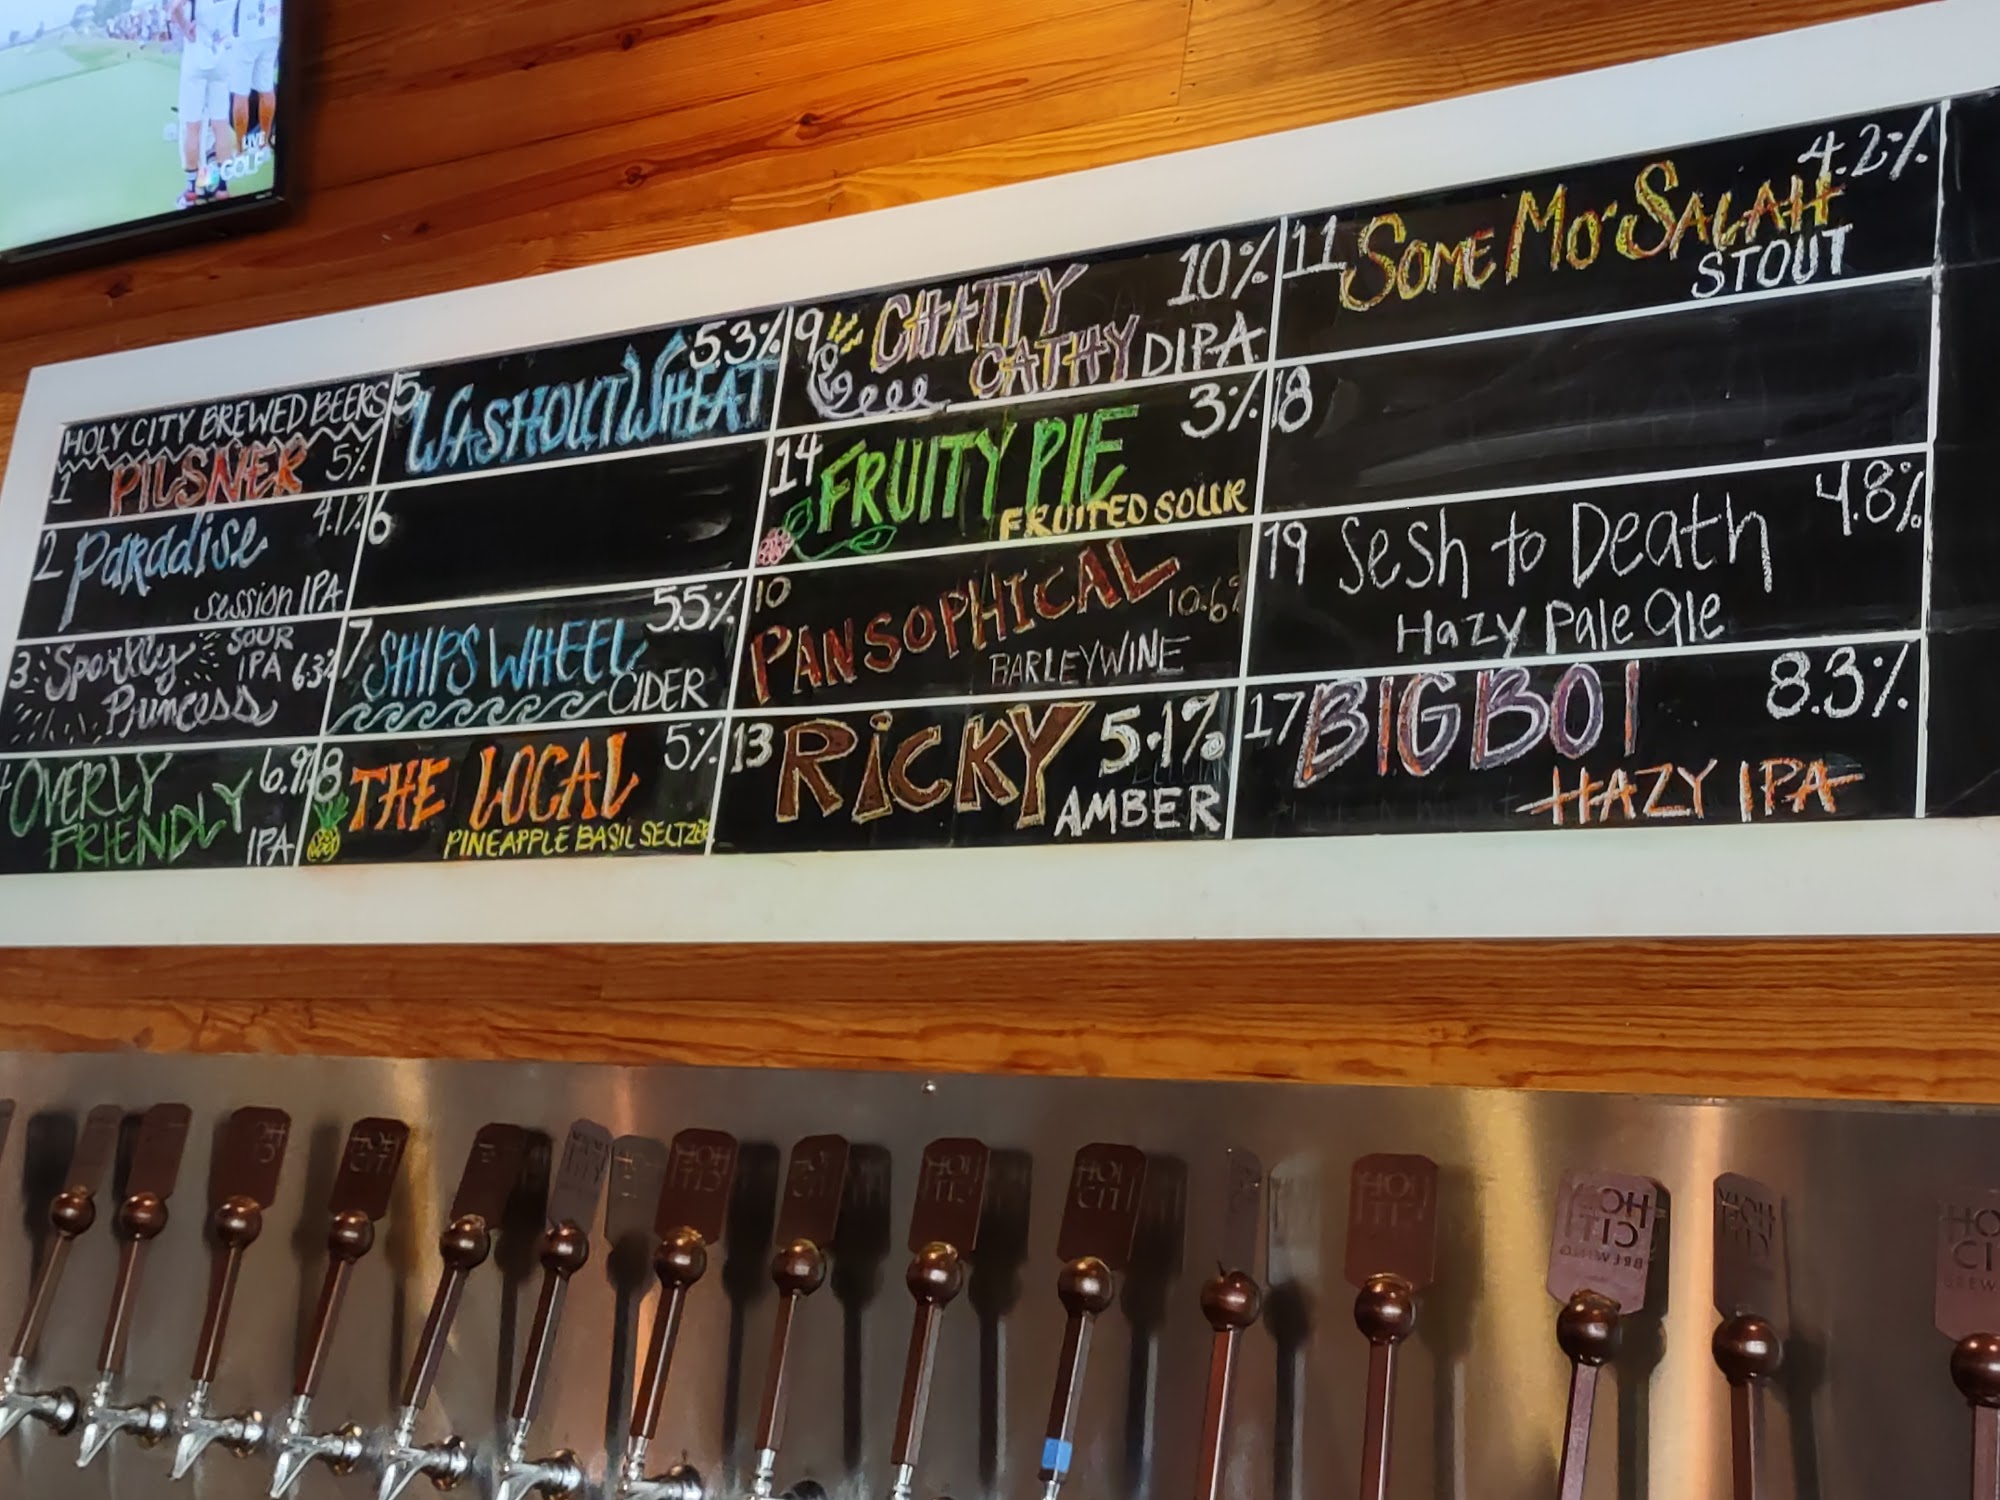 LIVE
GOLF
HOLY CITY BREWED BEERS
1 PILSNER 5%
2 Paradise 4.1%
Session IPA
3 Sparkly Princess
SOUR IPA 6.3%
OVERLY FRIENDLY 6.9%
IPA
5 WASHOUT WHEAT 5.3%
6
7 SHIPS WHEEL 5.5%
CIDER
8 THE LOCAL 5%
PINEAPPLE BASIL SELTZER
9 CHATTY CATHY 10%
DIPA
14 FRUITY PIE 3%
FRUITED SOUR
10 PANSOPHICAL 10.6%
BARLEYWINE
13 RICKY 5.1%
AMBER
11 SOME MO' SALAH 4.2%
STOUT
18
19 Sesh to Death 4.8%
Hazy Pale ale
17 BIG BOI 8.3%
HAZY IPA